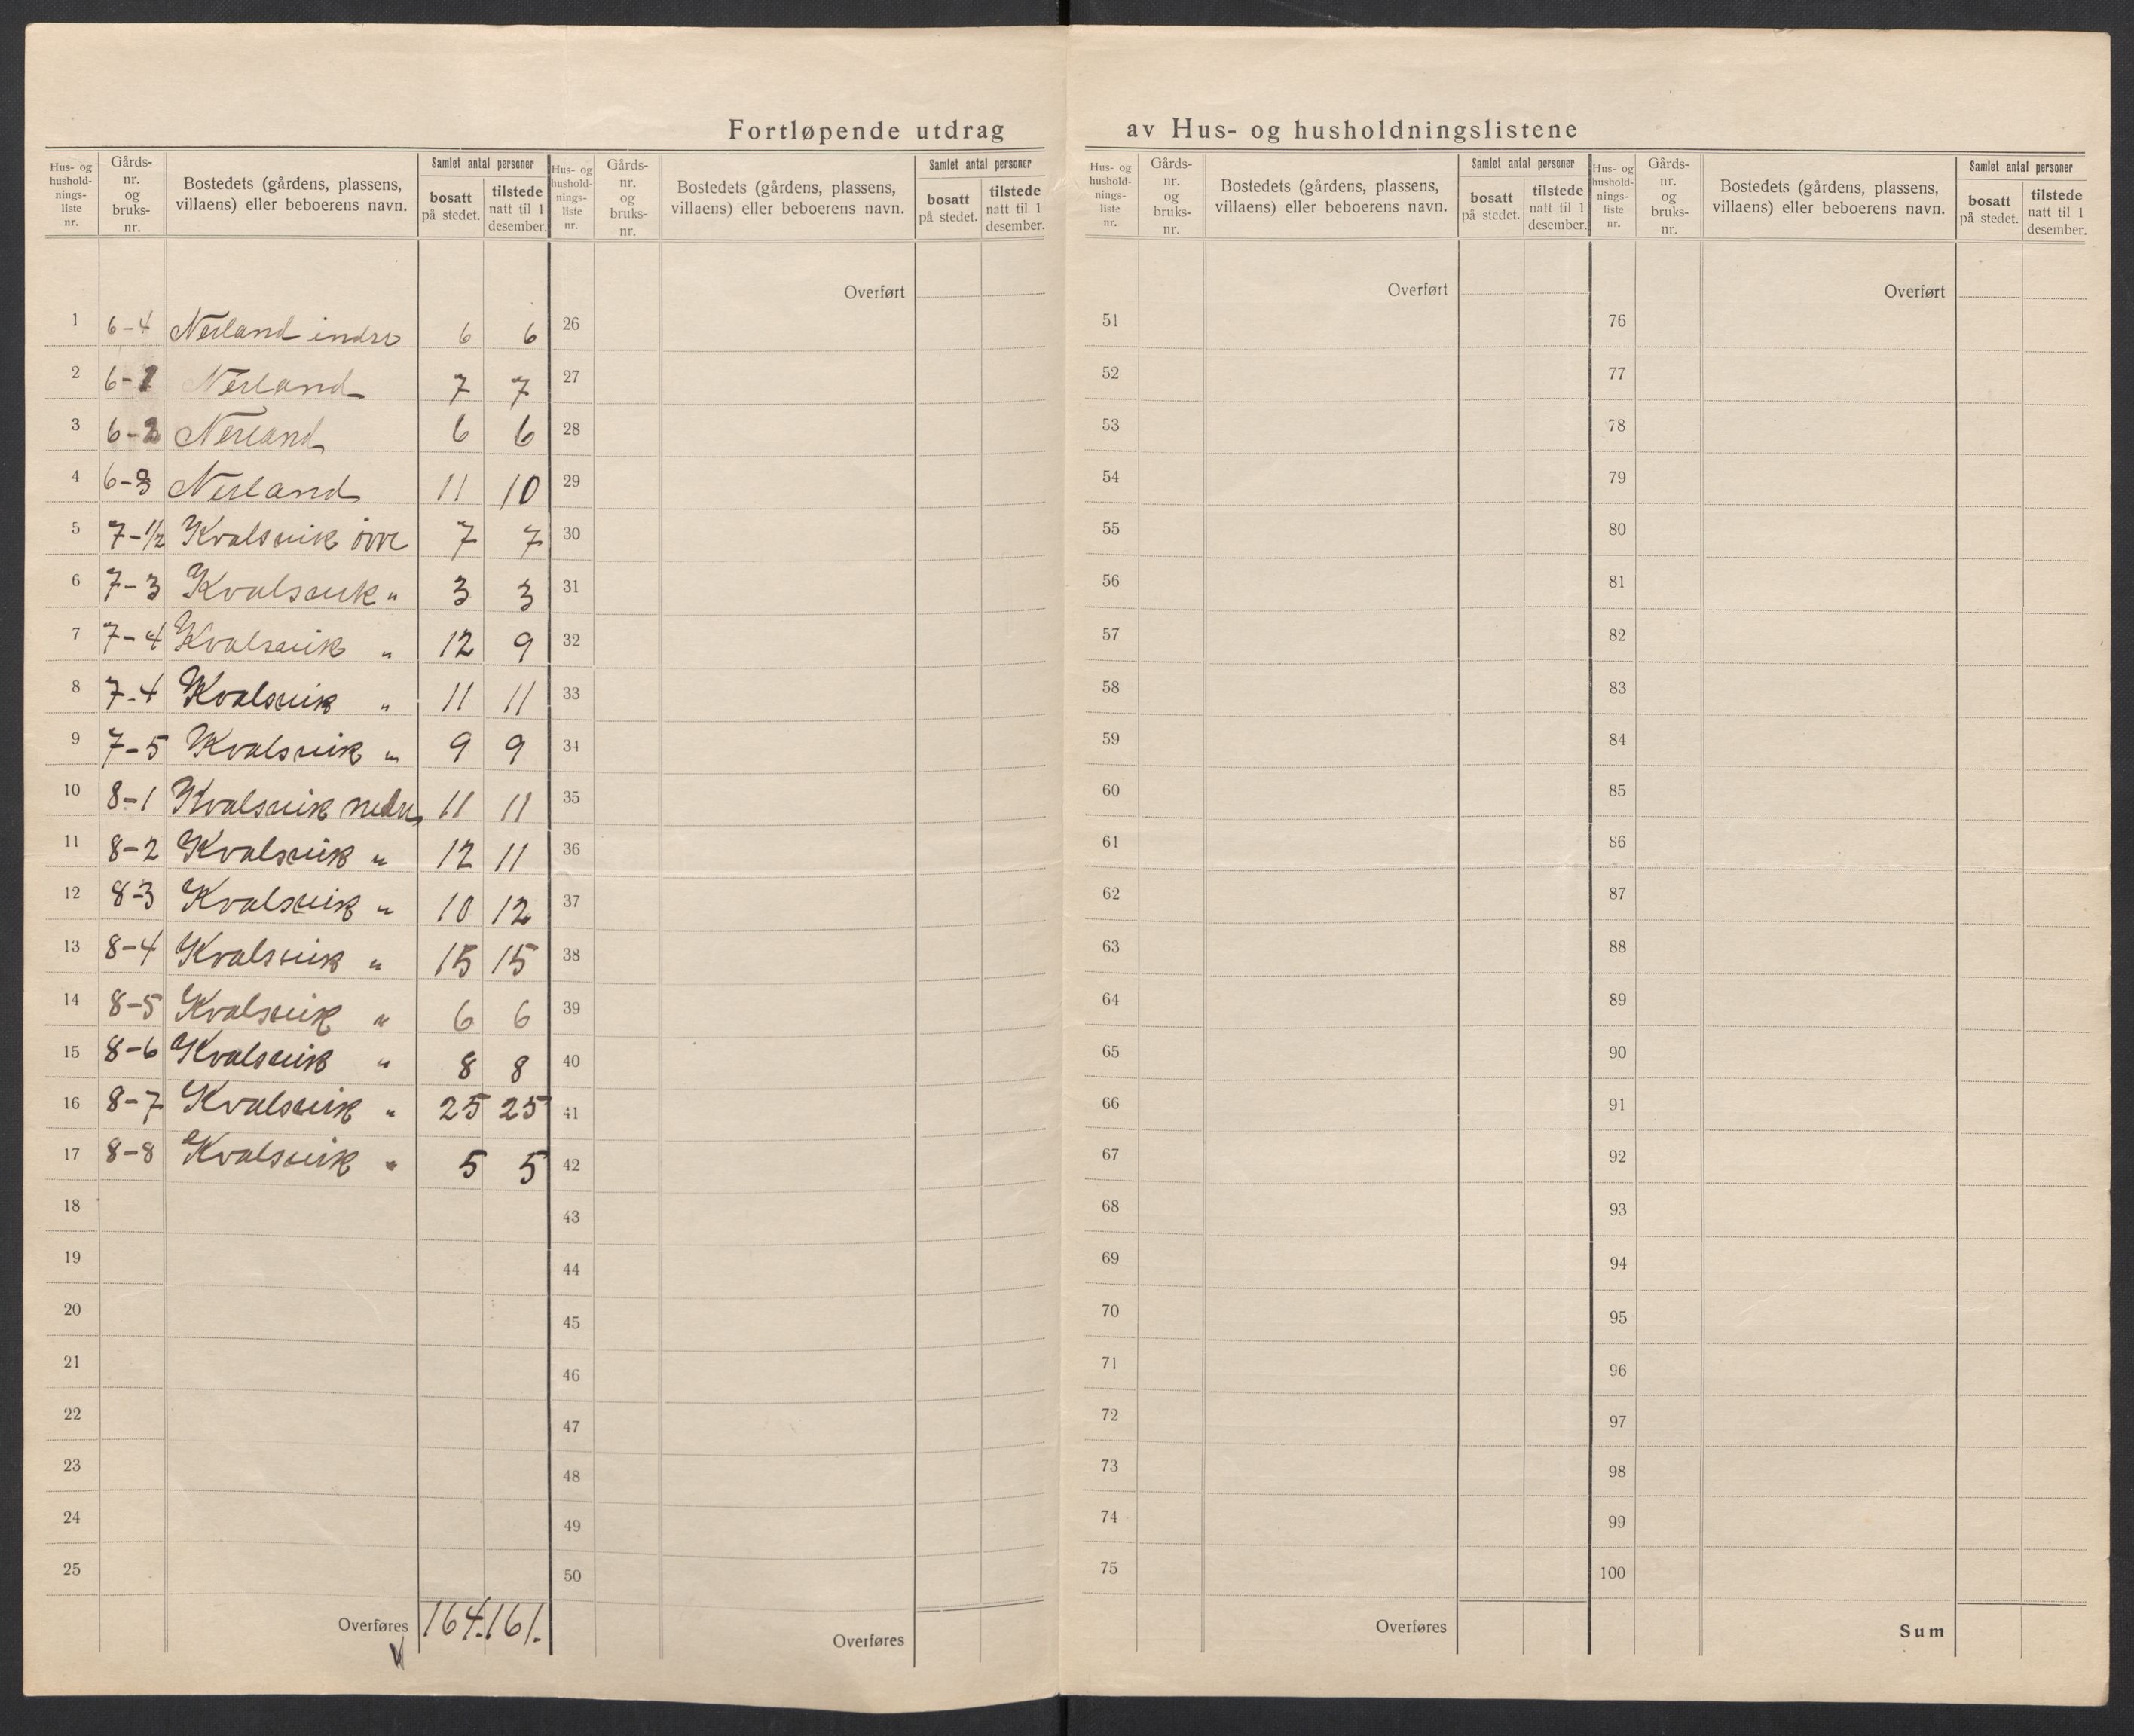 Fortløpende utdrag av Hus- og husholdningslistene
Hus- og hushold-nings-liste nr. | Gårds-nr. og bruks-nr. | Bostedets (gårdens, plassens, villaens) eller beboerens navn. | Samlet antal personer bosatt på stedet. | tilstede natt til 1 desember.
Hus- og hushold-nings-liste nr. | Gårds-nr. og bruks-nr. | Bostedets (gårdens, plassens, villaens) eller beboerens navn. | Samlet antal personer bosatt på stedet. | tilstede natt til 1 desember.
Hus- og hushold-nings-liste nr. | Gårds-nr. og bruks-nr. | Bostedets (gårdens, plassens, villaens) eller beboerens navn. | Samlet antal personer bosatt på stedet. | tilstede natt til 1 desember.
Hus- og hushold-nings-liste nr. | Gårds-nr. og bruks-nr. | Bostedets (gårdens, plassens, villaens) eller beboerens navn. | Samlet antal personer bosatt på stedet. | tilstede natt til 1 desember.
1 6-4 Nerland indre 6 6
2 6-1 Nerland 7 7
3 6-2 Nerland 6 6
4 6-3 Nerland 11 10
5 7-1/2 Kvalsvik övre 7 7
6 7-3 Kvalsvik " 3 3
7 7-4 Kvalsvik " 12 9
8 7-4 Kvalsvik " 11 11
9 7-5 Kvalsvik " 9 9
10 8-1 Kvalsvik nedre 11 11
11 8-2 Kvalsvik " 12 11
12 8-3 Kvalsvik " 10 12
13 8-4 Kvalsvik " 15 15
14 8-5 Kvalsvik " 6 6
15 8-6 Kvalsvik " 8 8
16 8-7 Kvalsvik " 25 25
17 8-8 Kvalsvik " 5 5
18
19
20
21
22
23
24
25
Overføres 164. 161.
Overført
26
27
28
29
30
31
32
33
34
35
36
37
38
39
40
41
42
43
44
45
46
47
48
49
50
Overføres
Overført
51
52
53
54
55
56
57
58
59
60
61
62
63
64
65
66
67
68
69
70
71
72
73
74
75
Overføres
Overført
76
77
78
79
80
81
82
83
84
85
86
87
88
89
90
91
92
93
94
95
96
97
98
99
100
Sum